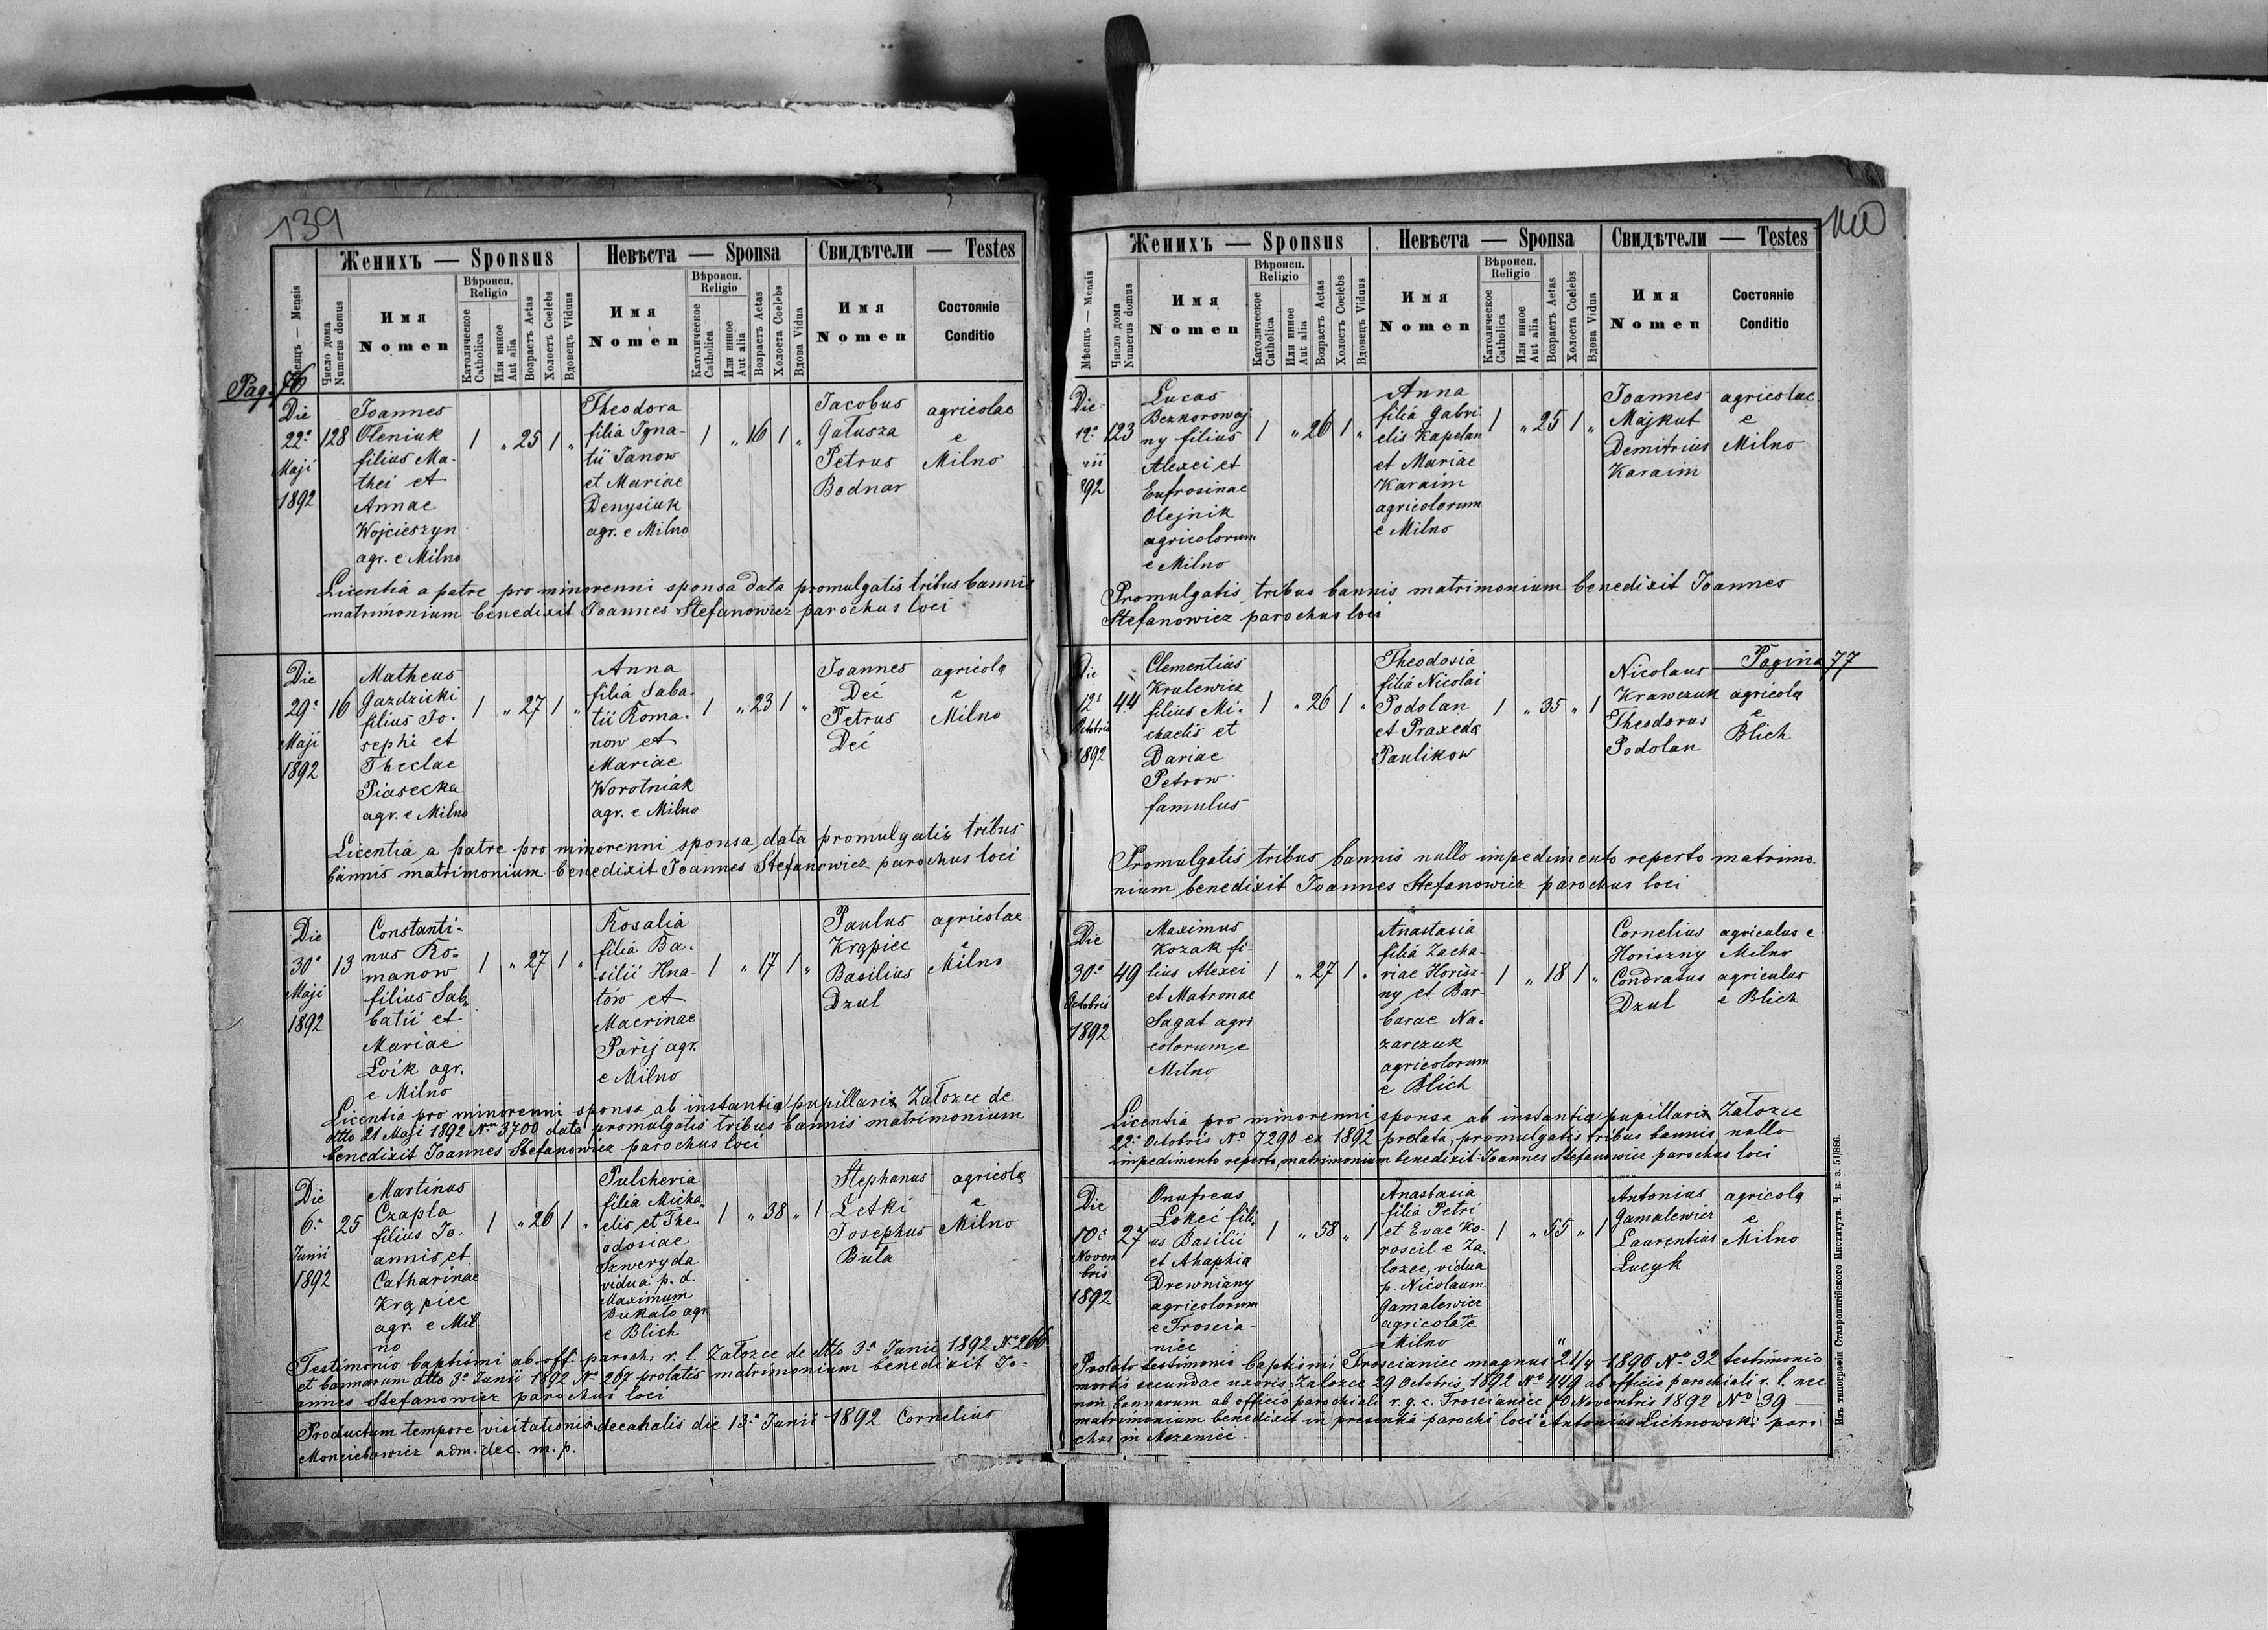 139
Женихъ — Sponsus
Невѣста — Sponsa
Свидѣтели — Testes
Мѣсяцъ — Mensis
Число дома
Numerus domus
Имя
Nomen
Вѣроисп.
Religio
Католическое
Catholica
Или инное
Aut alia
Возрастъ Aetas
Холостъ Coelebs
Вдовецъ Viduus
Имя
Nomen
Вѣроисп.
Religio
Католическое
Catholica
Или инное
Aut alia
Возрастъ Aetas
Холоста Coelebs
Вдова Vidua
Имя
Nomen
Состояніе
Conditio
Pag. 76
Die
22ª
Maji
1892
128
Joannes
Oleniuk
filius Ma-
thei et
Annae
Wojcieszyn
agr. e Milno
1 " 25 1 "
Theodora
filia Igna-
tii Janow
et Mariae
Denysiuk
agr. e Milno
1 " 16 1 "
Jacobus
Gałusza
Petrus
Bodnar
agricolae
e
Milno
Licentia a patre pro minorenni sponsa data promulgatis tribus bannis
matrimonium benedixit Joannes Stefanowicz parochus loci
Die
29ª
Maji
1892
16
Matheus
Gazdzicki
filius Jo-
sephi et
Theclae
Piasecka
agr. e Milno
1 " 27 1 "
Anna
filia Saba-
tii Roma-
now et
Mariae
Worotniak
agr. e Milno
1 " 23 1 "
Joannes
Deć
Petrus
Deć
agricola
e
Milno
Licentia a patre pro minorenni sponsa data promulgatis tribus
bannis matrimonium benedixit Joannes Stefanowicz parochus loci
Die
30ª
Maji
1892
13
Constanti-
nus Ro-
manow
filius Sab-
batii et
Mariae
Loik agr.
e Milno
1 " 27 1 "
Rosalia
filia Ba-
silii Hna-
tów et
Macrinae
Parij agr.
e Milno
1 " 17 1 "
Paulus
Krąpiec
Basilius
Dzul
agricolae
e
Milno
Licentia pro minorenni sponsa ab instantia pupillaris Załozce de
dtto 21 Maji 1892 Nro 3700 data promulgatis tribus bannis matrimonium
benedixit Joannes Stefanowicz parochus loci
Die
6ª
Junii
1892
25
Martinus
Czapla
filius Jo-
annis et
Catharinae
Krąpiec
agr. e Mil
no
1 " 26 1 "
Pulcheria
filia Micha-
elis et The-
odosiae
Szweryda
vidua p. d.
Maximum
Bukato agr.
e Blich
1 " 38 " 1
Stephanus
Letki
Josephus
Buła
agricola
e
Milno
Testimonio baptismi ab off. paroch. r. l. Załozce de dtto 3ª Junii 1892 Nro 266
et bannorum dtto 3ª Junii 1892 Nº 207 prolatis matrimonium benedixit Jo-
annes Stefanowicz parochus loci
Productum tempore visitationis decanalis die 13ª Junii 1892 Cornelius
adm. dec. m. p.
140
Женихъ — Sponsus
Невѣста — Sponsa
Свидѣтели — Testes
Мѣсяцъ — Mensis
Число дома
Numerus domus
Имя
Nomen
Вѣроисп.
Religio
Католическое
Catholica
Или инное
Aut alia
Возрастъ Aetas
Холостъ Coelebs
Вдовецъ Viduus
Имя
Nomen
Вѣроисп.
Religio
Католическое
Catholica
Или инное
Aut alia
Возрастъ Aetas
Холоста Coelebs
Вдова Vidua
Имя
Nomen
Состояніе
Conditio
Die
12ª
892
123
Lucas
Bezkorowaj-
ny filius
Alexei et
Eufrosinae
Olejnik
agricolorum
e Milno
1 " 26 1 "
Anna
filia Gabri-
elis Kapelan
et Mariae
Karaim
agricolorum
e Milno
1 " 25 1 "
Joannes
Majkut
Demitrius
Karaim
agricolae
e
Milno
Promulgatis tribus bannis matrimonium benedixit Joannes
Stefanowicz parochus loci
Pagina 77
Die
12ª
Octobris
1892
44
Clementius
Krulewicz
filius Mi-
chaelis et
Dariae
Petrow
famulus
1 " 26 1 "
Theodosia
filia Nicolai
Podolan
et Praxeda
Paulikow
1 " 35 " 1
Nicolaus
Krawczuk
Theodorus
Podolan
agricola
e
Blich
Promulgatis tribus bannis nullo impedimento reperto matrimo-
nium benedixit Joannes Stefanowicz parochus loci
Die
30ª
Octobris
1892
49
Maximus
Kozak fi-
lius Alexei
et Matronae
Sagat agri
colorum e
Milno
1 " 27 1 "
Anastasia
filia Zacha-
riae Horisz-
ny et Bar-
barae Na-
zarczuk
agricolorum
e Blich
1 " 18 1 "
Cornelius
Horiszny
Condratus
Dzul
agriculus e
Milno
agriculus
e Blich
Licentia pro minorenni sponsa ab instantia pupillaris Załozce
22ª Octobris Nº 7290 ex 1892 prolata, promulgatis tribus bannis, nullo
impedimento reperto, matrimonium benedixit Joannes Stefanowicz parochus loci
Die
10ª
Novem
bris
1892
27
Onufreus
Lokeć fili
us Basilii
et Ahaphia
Drewniany
agricolorum
e Troscia-
niec
1 " 58 " 1
Anastasia
filia Petri
et Evae Ko-
roscil e Za-
lozec, vidua
p. Nicolaum
Gamalewicz
agricolam e
Milno
1 " 55 " 1
Antonius
Gamalewicz
Laurentius
Lucyk
agricola
e
Milno
Prolato testimonio baptismi Troscianiec magnus 24/4 1890 Nº 32 testimonio
mortis secundae uxoris Zalozce 29 Octobris 1892 Nº 449 ab officio parochiali r. l. nec
non bannorum ab officio parochiali r. g. c. Troscianiec 10 Novembris 1892 Nº 39 —
matrimonium benedixit in presentia parochi loci Antonius Lichnowski paro
chus in
Изъ типографіи Ставропигійского Института. Ч. к. з. 51/886.